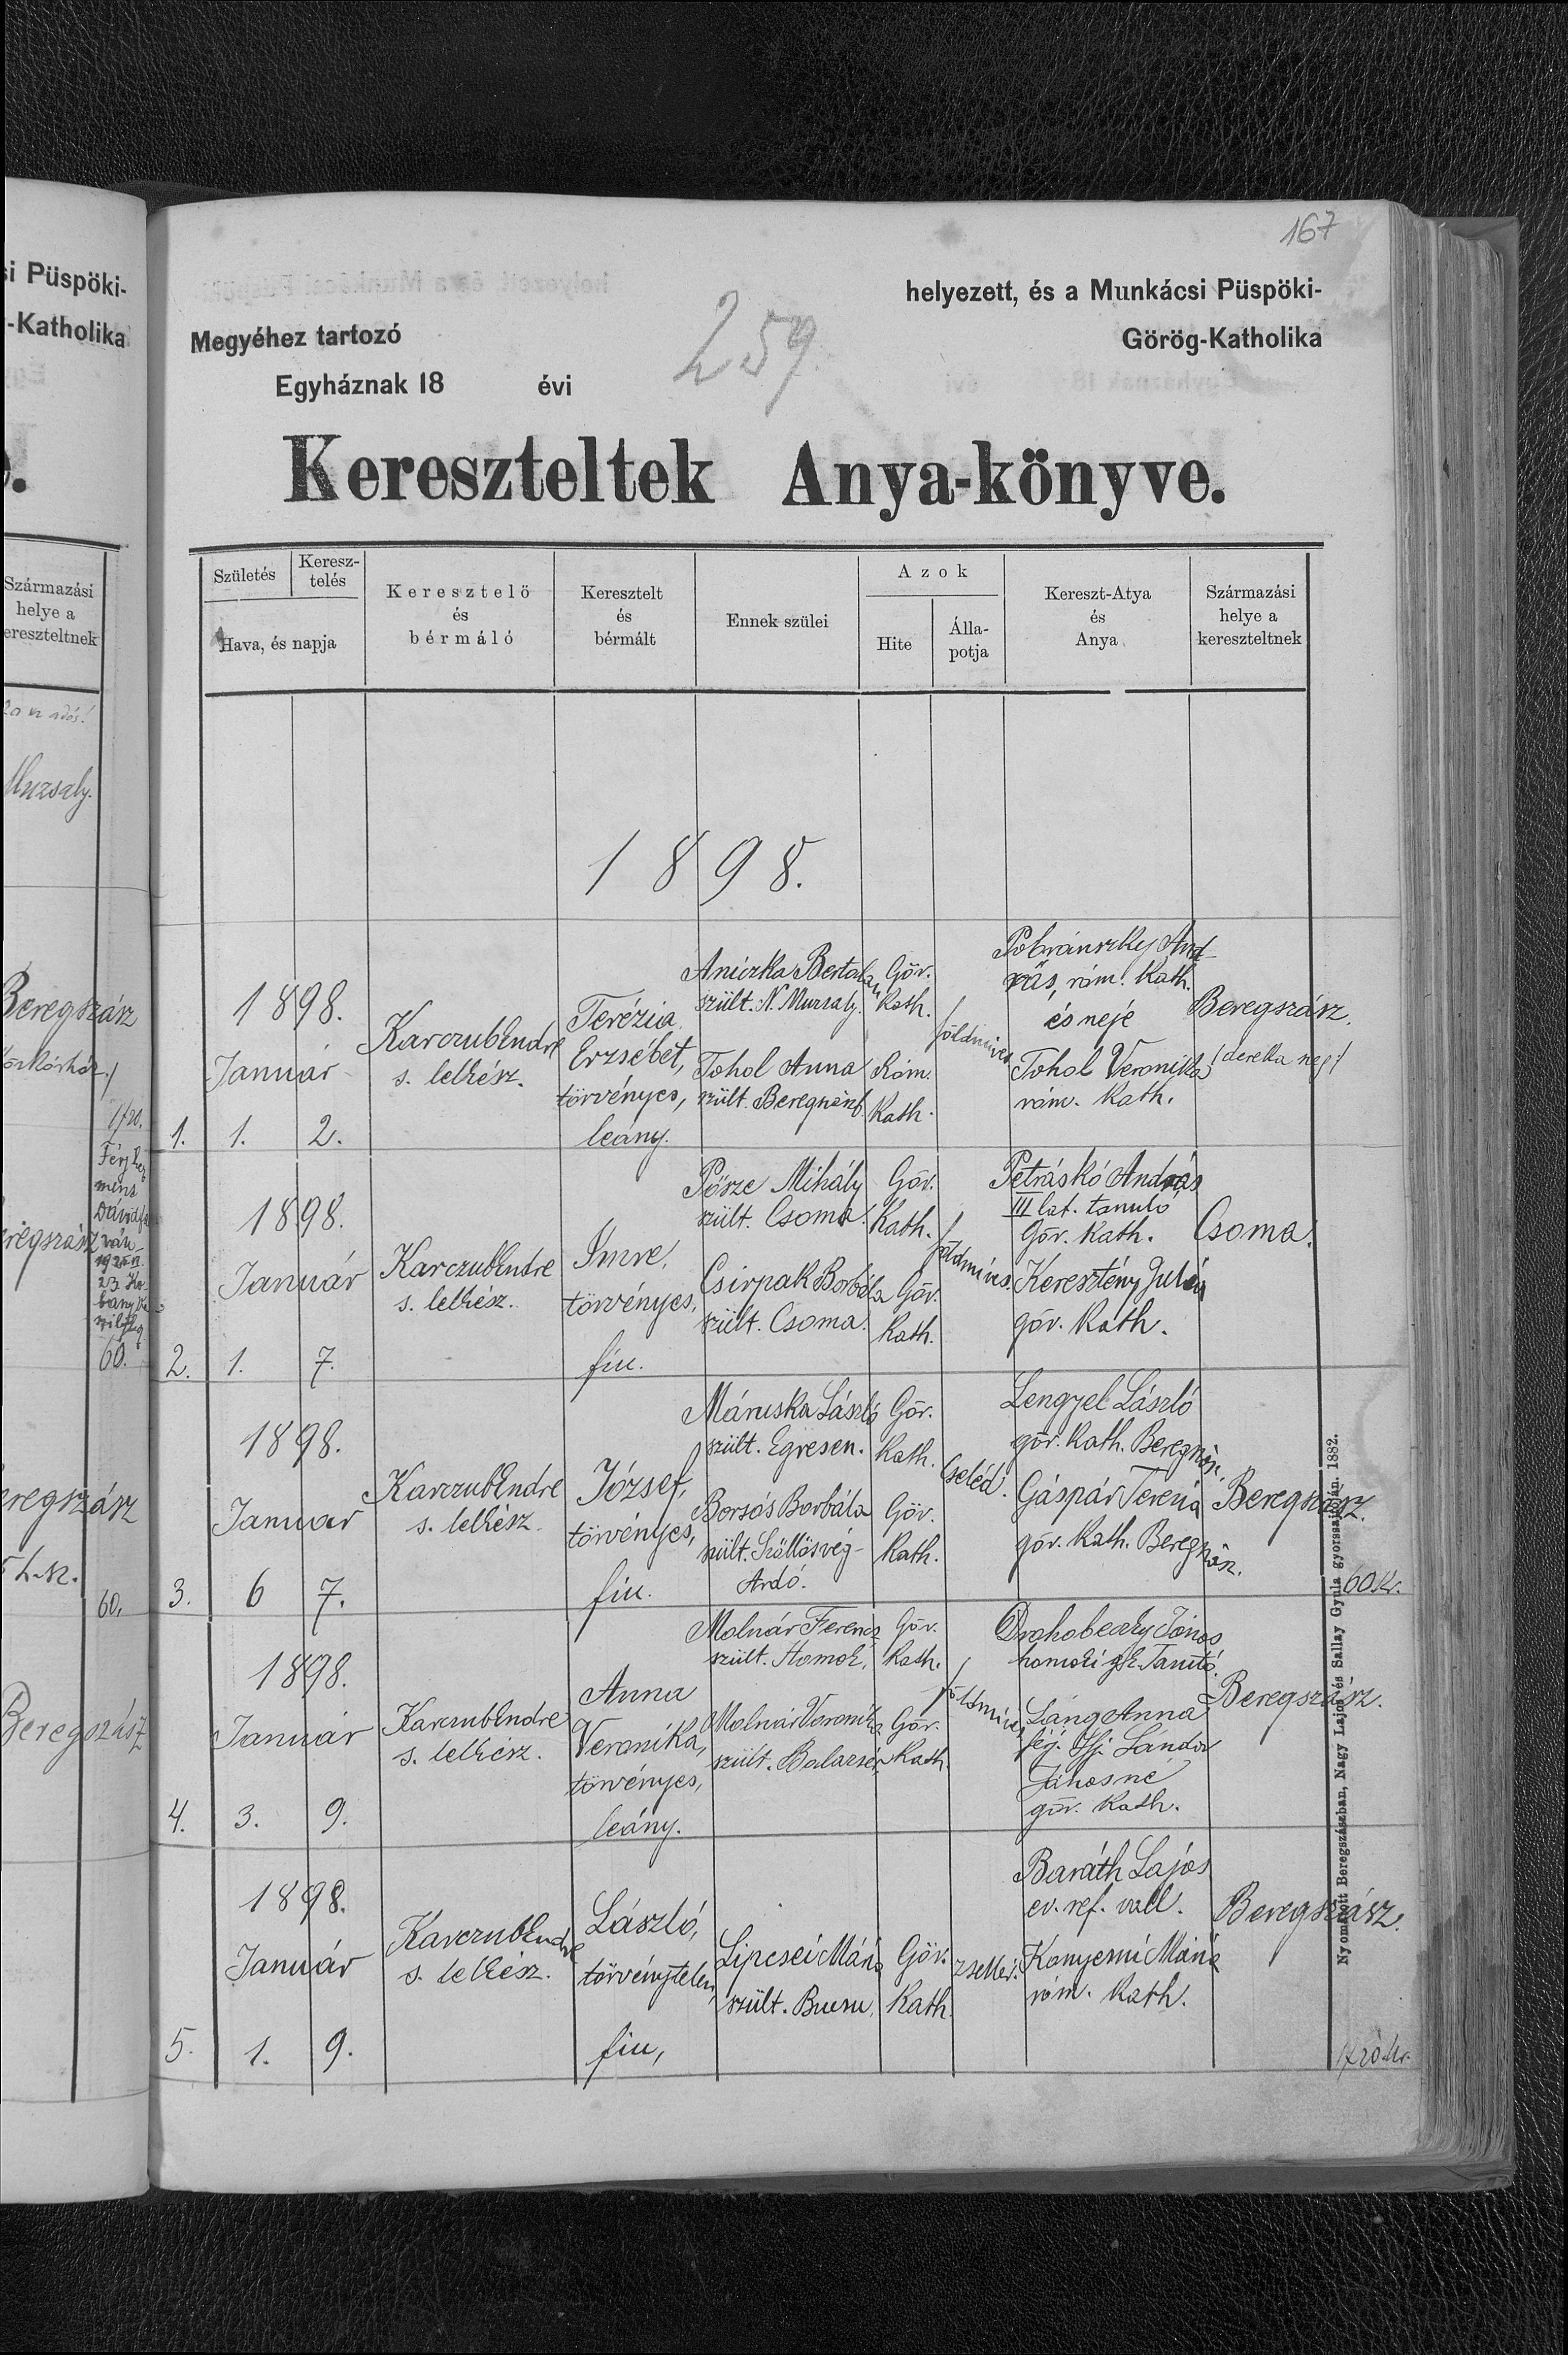 167
si Püspöki-
-Katholika
helyezett, és a Munkácsi Püspöki-
Megyéhez tartozó
Görög-Katholika
Egyháznak 18 évi
259.
Kereszteltek Anya-könyve.
Származási
helye a
kereszteltnek
Muzsaly.
Beregszász
60.
Beregszász
60.
Beregszász
Születés
Keresz-
telés
Hava, és napja
Keresztelő
és
bérmáló
Keresztelt
és
bérmált
Ennek szülei
Azok
Hite
Álla-
potja
Kereszt-Atya
és
Anya
Származási
helye a
kereszteltnek
1898.
1.
1898.
Január
1. 2.
Karczub Endre
s. lelkész.
Terézia
Erzsébet,
törvényes,
leány.
Aniczka Bertalan
szült. N. Muzsaly.
Tohol Anna
szült. Beregszász
Gör.
Kath.
Róm.
Kath.
földmives
András, róm. Kath.
és neje
Tohol Veronika
róm. Kath.
Beregszász.
2.
1898.
Január
1. 7.
Karczub Endre
s. lelkész.
Imre,
törvényes,
fiu.
Pősze Mihály
szült. Csoma.
Csirpak Borbála
szült. Csoma.
Gör.
Kath.
Gör.
Kath.
földmives.
Petráskó András
III lat. tanuló
Gör. Kath.
Keresztény Julia
gör. Kath.
Csoma.
3.
1898.
Január
6 7.
Karczub Endre
s. lelkész.
József,
törvényes,
fiu.
Máruska László
szült. Egresen.
Borsós Borbála
szült. Szőllősvég-
Ardó.
Gör.
Kath.
Gör.
Kath.
Cseléd.
Lengyel László
gör. Kath. Beregsász.
Gáspár Terézia
gör. Kath. Beregsász.
Beregszász.
60 kr.
4.
1898.
Január
3. 9.
Karczub Endre
s. lelkész.
Anna
Veronika,
törvényes,
leány.
Molnár Ferencz
szült. Homok.
Molnár Veronika
szült. Balazsér.
Gör.
Kath.
Gör.
Kath.
földmives
Drohobeczky János
homoki gk. Tanító.
Láng Anna
férj. Ifj. Sándor
Jánosné
gör. Kath.
Beregszász.
5.
1898.
Január
1. 9.
Karczub Endre
s. lelkész.
László,
törvénytelen,
fiu,
Lipcsei Mária
szült. Bucsu,
Gör.
Kath.
zsellér.
Baráth Lajos
ev. ref. vall.
Mária
róm. Kath.
Beregszász.
Nyomatott Beregszászban, Nagy Lajos és Sallay Gyula gyorssajtóján. 1882.